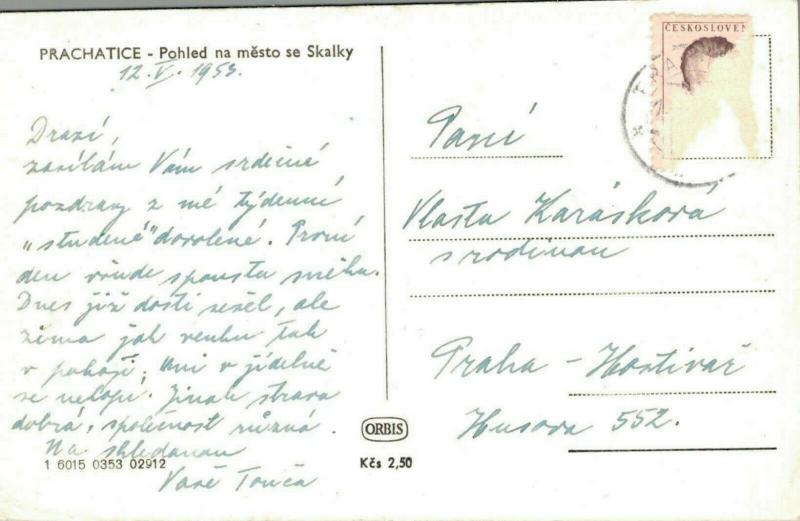 PRACHATICE - Pohled na město se Skalky
12. V. 1953.
Drazí,
zasílám Vám srdečné
pozdravy z mé týdenní
„studené" dovolené. První
den všude spousta sněhu.
Dnes již dosti sešel, ale
zima jak venku tak
v pokoji, ani v jídelně
se netopí. Jinak strava
dobrá, společnost různá.
Na shledanou
Vaše Tonča
1 6015 0353 02912
ORBIS
Kčs 2,50
ČESKOSLOVEN
Paní
Vlasta Karásková
s rodinou
Praha - Hostivař
Husova 552.